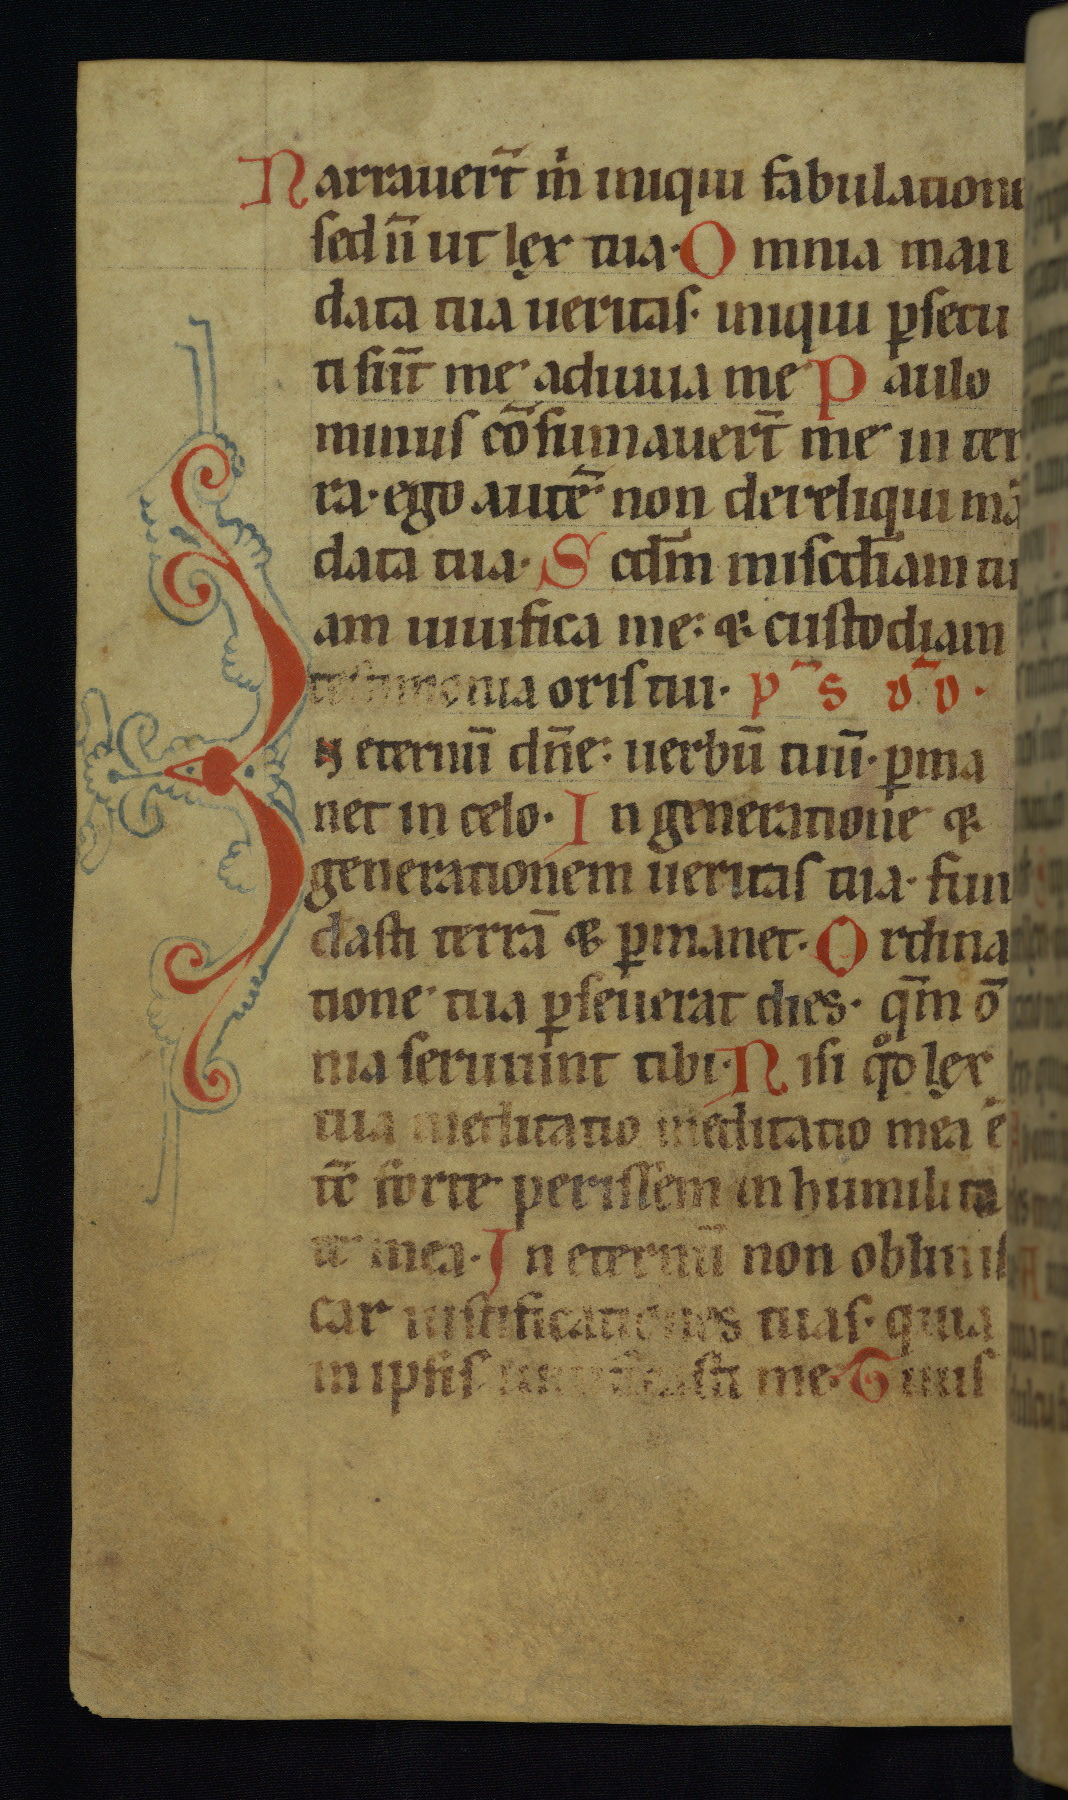 Narrauer̄t m̄ iniqui fabulatione
sed n̄ ut lex tua· Omnia man
data tua ueritas· iniqui ꝑsecu
ti sūt me adiuua me Paulo
minus cōsummauer̄t me in ter
ra· ego autē non dereliqui mā
data tua· Scd̄m misc̄diam tu
am uiuifica me: ⁊ custodiam
testimonia oris tui· p̄s d̄d·
In eternū dn̄e: uerbū tuū· ꝑma
net in celo· In generatione ⁊
generationem ueritas tua· fun
dasti terrā ⁊ ꝑmanet· Ordina
tione tua ꝑseuerat dies· qm̄ ō
nia seruiunt tibi· Nisi qͦd lex
tua meditatio meditatio mea ē
tc̄ forte perissem in humilita
te mea· In eternū non obliuis
car iustificationes tuas· quia
in ipsis uiuificasti me· Tuus